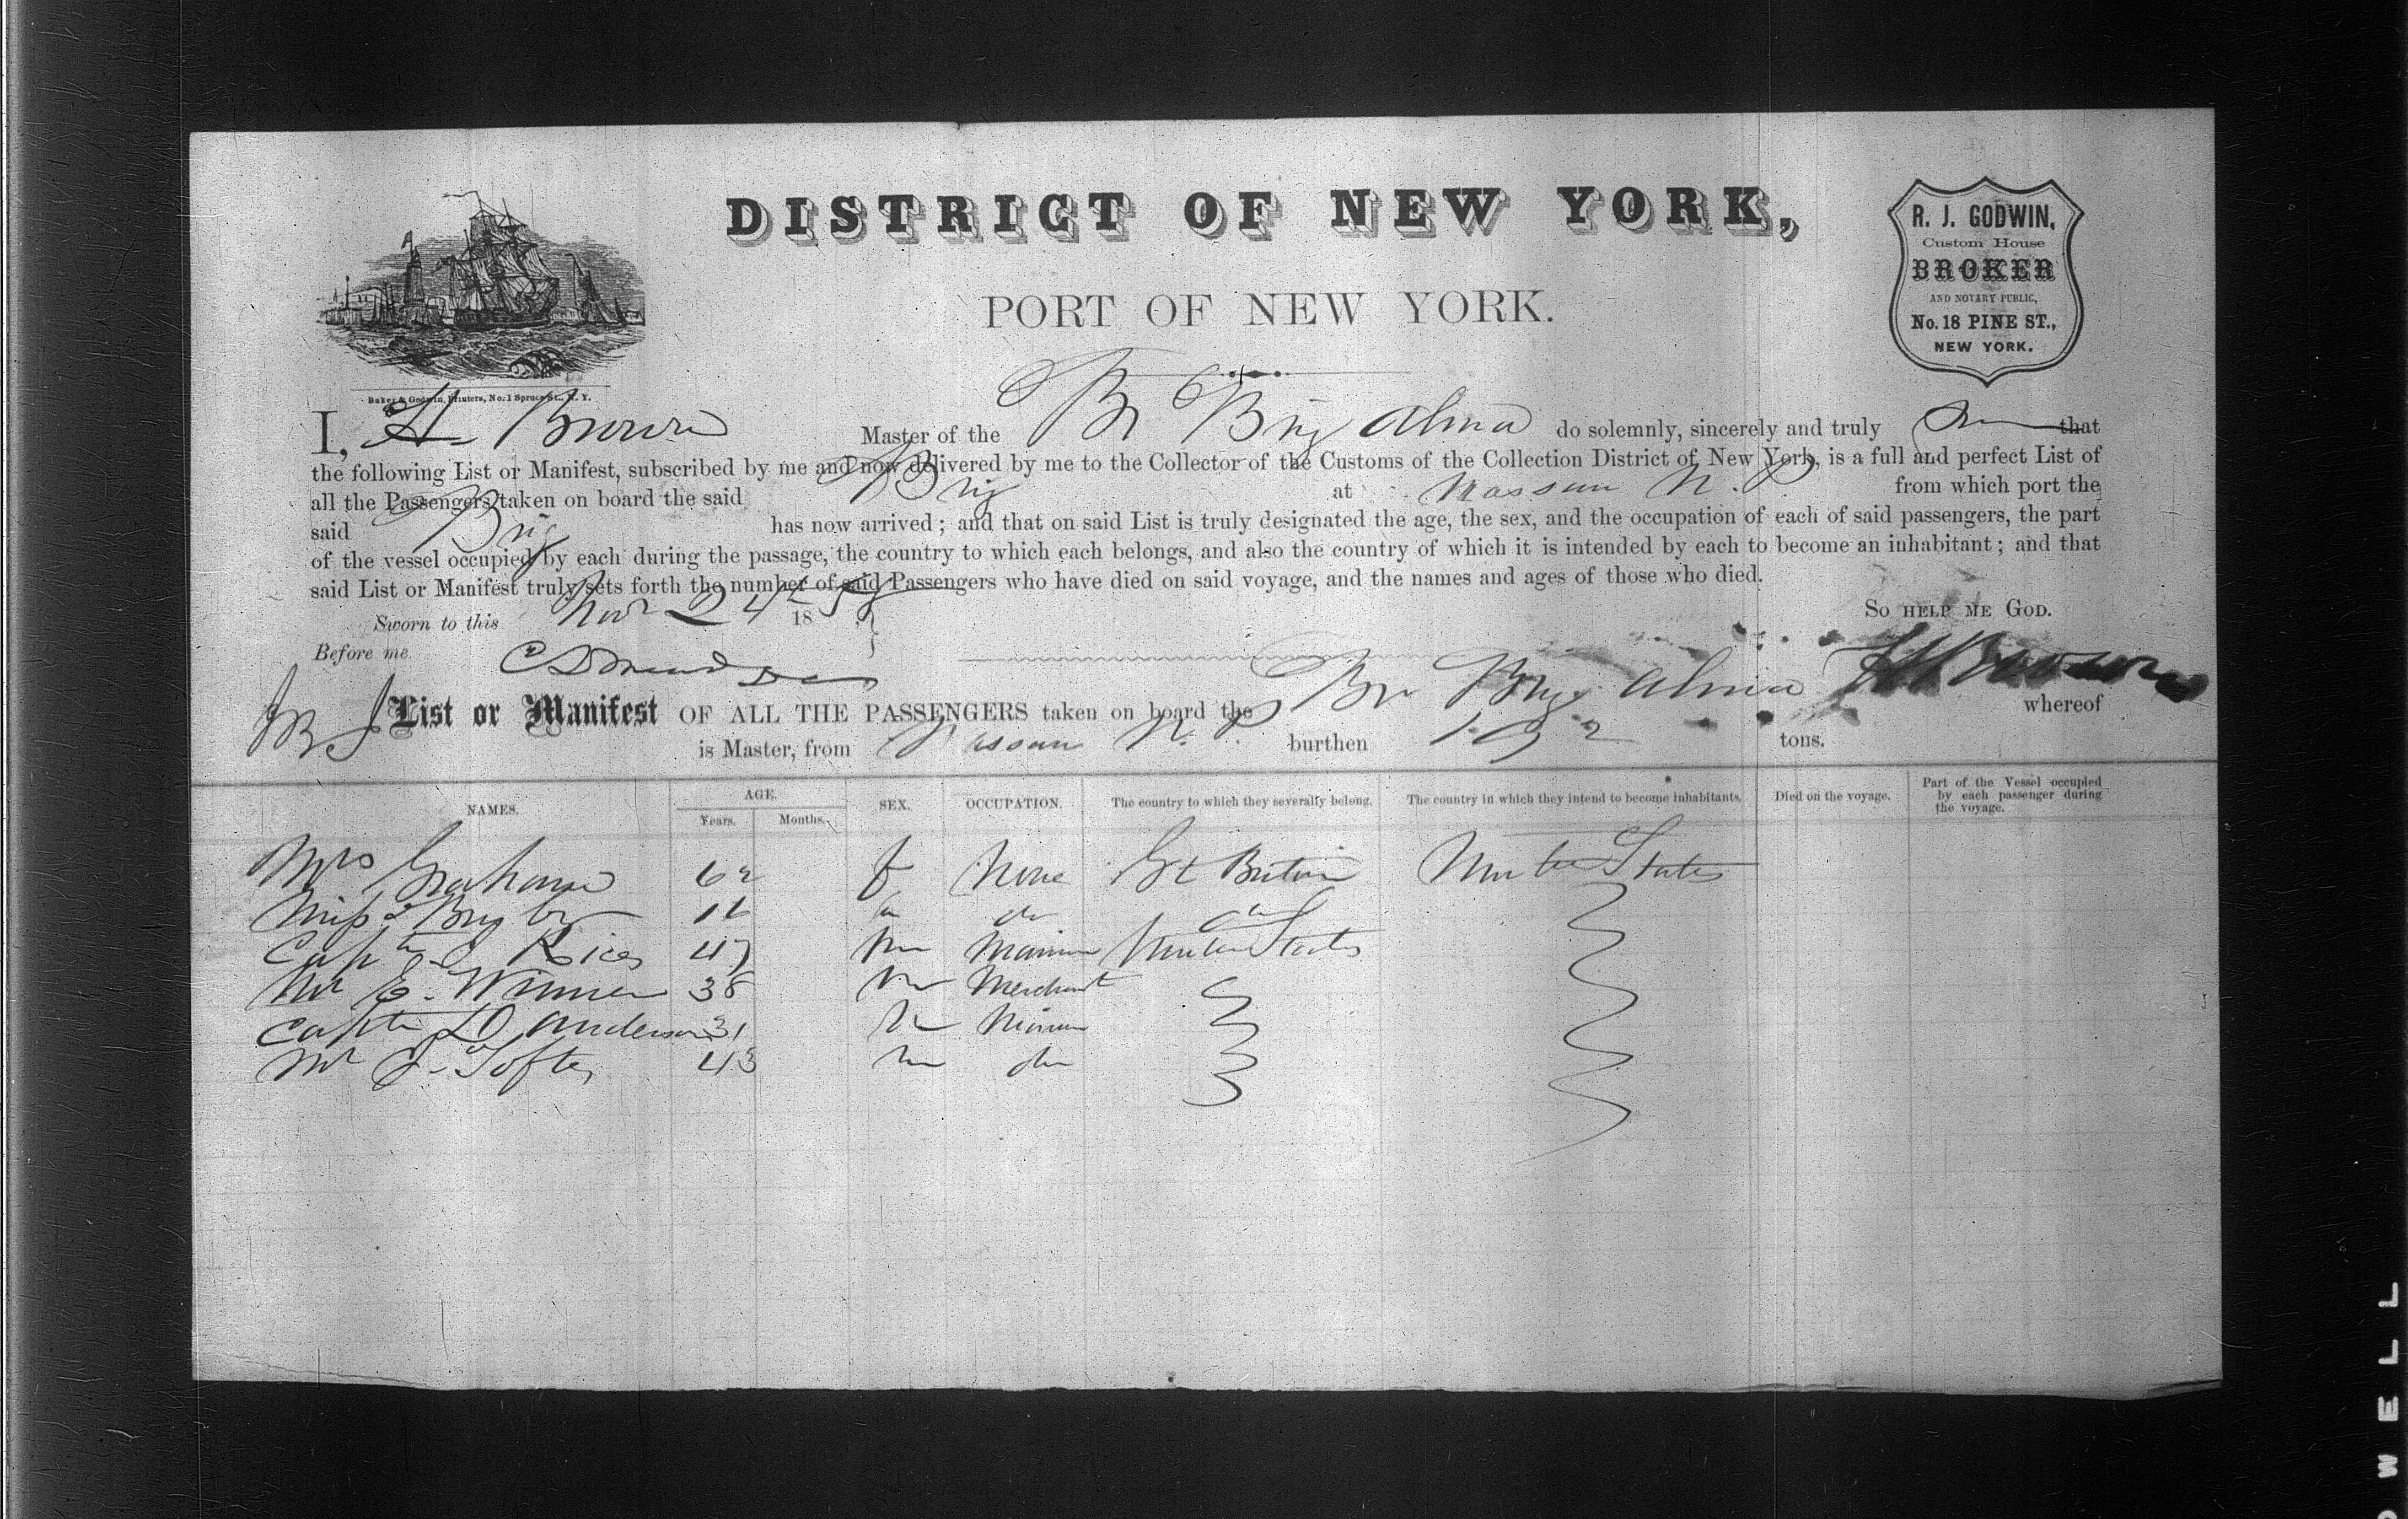 DISTRICT OF NEW YORK,
PORT OF NEW YORK.
R. J. GODWIN,
Custom House
BROKER
AND NOTARY PUBLIC,
No. 18 PINE ST.,
NEW YORK.
Baker & Godwin, Printers, No. 1 Spruce St., N. Y.
I, H Brown Master of the Br Brig Alma do solemnly, sincerely and truly that
the following List or Manifest, subscribed by me and now delivered by me to the Collector of the Customs of the Collection District of New York, is a full and perfect List of
all the Passengers taken on board the said Brig at Nassau N. P from which port the
said Brig has now arrived; and that on said List is truly designated the age, the sex, and the occupation of each of said passengers, the part
of the vessel occupied by each during the passage, the country to which each belongs, and also the country of which it is intended by each to become an inhabitant; and that
said List or Manifest truly sets forth the number of said Passengers who have died on said voyage, and the names and ages of those who died.
Sworn to this Nov 24 18 So help me God.
Before me
H Brown
List or Manifest OF ALL THE PASSENGERS taken on board the Br Brig Alma whereof
is Master, from Nassau N. P burthen 192 tons.
NAMES. AGE. Years. Months. SEX. OCCUPATION. The country to which they severally belong. The country in which they intend to become inhabitants. Died on the voyage. Part of the Vessel occupied by each passenger during the voyage.
Mrs Graham 62 f None Gt Britain United States
Miss 16 do do
Capt Rices 47 m Mariner United States
Mr E. 38 m Merchant
Capt D Anderson 31 m Mariner
Mr J. Softes 43 m do
WELL